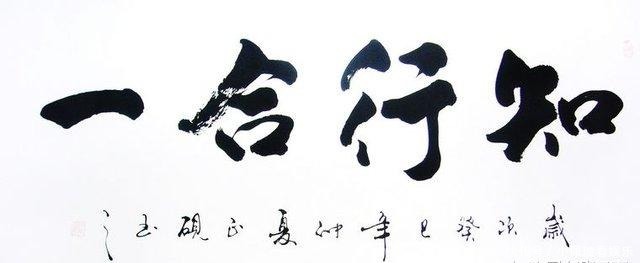 知行合一
歲次癸巳年仲夏正硯